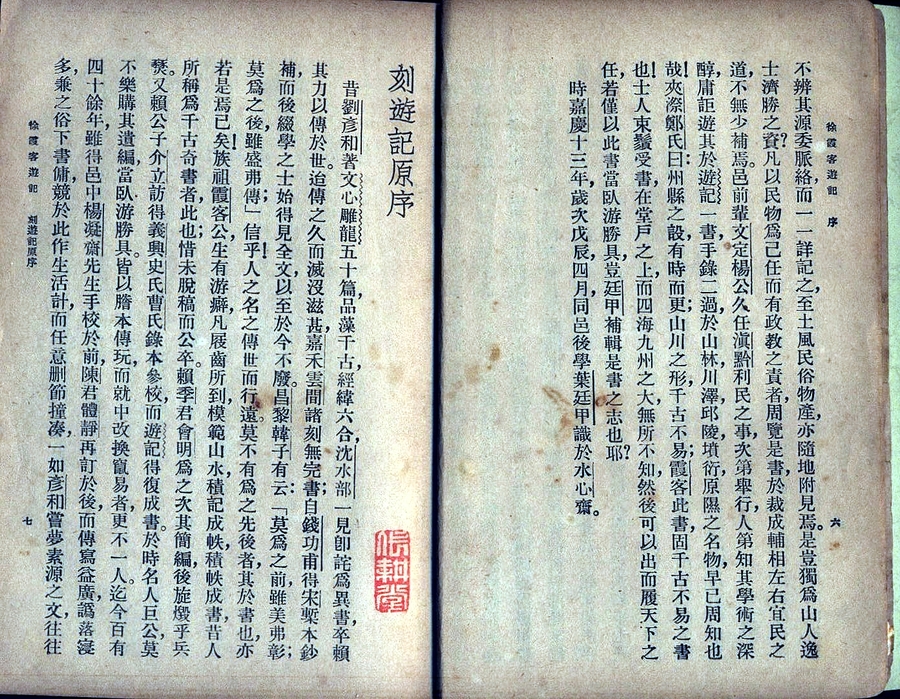 徐霞客遊記　序
六
不辨其源委脈絡，而一一詳記之，至土風民俗物產，亦隨地附見焉。是豈獨爲山人逸
士濟勝之資？凡以民物爲己任而有政教之責者，周覽是書，於裁成輔相左右宜民之
道，不無少補焉。邑前輩文定楊公久任滇黔，利民之事，次第舉行，人第知其學術之深
醇，庸詎遊其於遊記一書，手錄二過，於山林川澤邱陵墳衍原隰之名物，早已周知也
哉！夾漈鄭氏曰：州縣之設，有時而更；山川之形，千古不易；霞客此書，固千古不易之書
也！士人束髮受書，在堂戶之上，而四海九州之大，無所不知，然後可以出而履天下之
任，若僅以此書當臥游勝具，豈廷甲補輯是書之志也耶？
時嘉慶十三年，歲次戊辰，四月，同邑後學葉廷甲識於水心齋。
刻遊記原序
昔劉彥和著文心雕龍五十篇，品藻千古，經緯六合，沈水部一見，卽詫爲異書，卒賴
其力以傳於世。迨傳之久而滅沒滋甚，嘉禾雲間諸刻無完書；自錢功甫得宋槧本鈔
補，而後綴學之士始得見全文，以至於今不廢。昌黎韓子有云：「莫爲之前，雖美弗彰；
莫爲之後，雖盛弗傳」信乎！人之名之傳世而行遠，莫不有爲之先後者，其於書也，亦
若是焉已矣！族祖霞客公生有游癖，凡屐齒所到，模範山水，積記成帙，積帙成書，昔人
所稱爲千古奇書者，此也；惜未脫稿而公卒。賴季君會明爲之次其簡編，後旋燬乎兵
燹。又賴公子介立訪得義興史氏曹氏錄本參校，而遊記得復成書。於時名人巨公，莫
不樂購其遺編，當臥游勝具。皆以謄本傳玩，而就中改換竄易者，更不一人。迄今百有
四十餘年，雖得邑中楊凝齋先生手校於前，陳君體靜再訂於後，而傳寫益廣，譌落寖
多，乘之俗下書傭，競於此作生活計，而任意刪節撞湊，一如彥和嘗夢素源之文，往往
徐霞客遊記　刻遊記原序
七